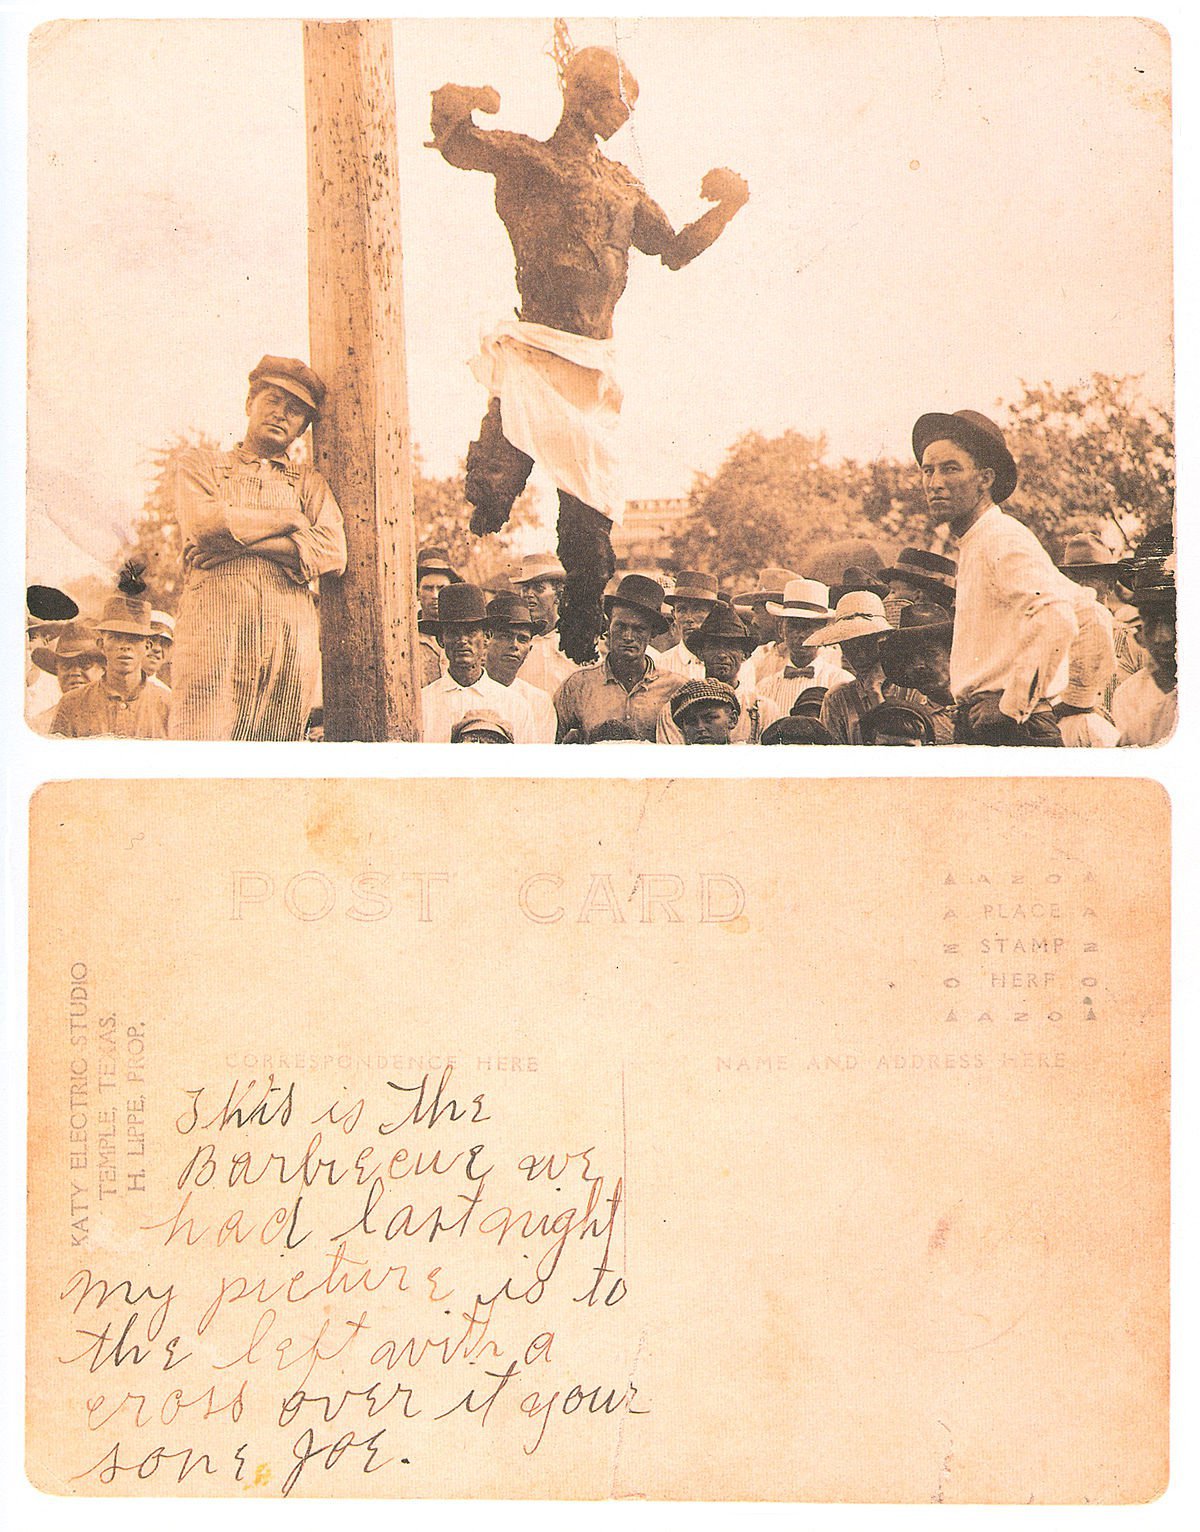 POST CARD
A A Z O A
A PLACE A
Z STAMP Z
O HERE O
A A Z O A
KATY ELECTRIC STUDIO
TEMPLE, TEXAS.
H. LIPPE, PROP.
CORRESPONDENCE HERE
NAME AND ADDRESS HERE
This is the
Barbecue we
had last night
my picture is to
the left with a
cross over it your
sone Joe.